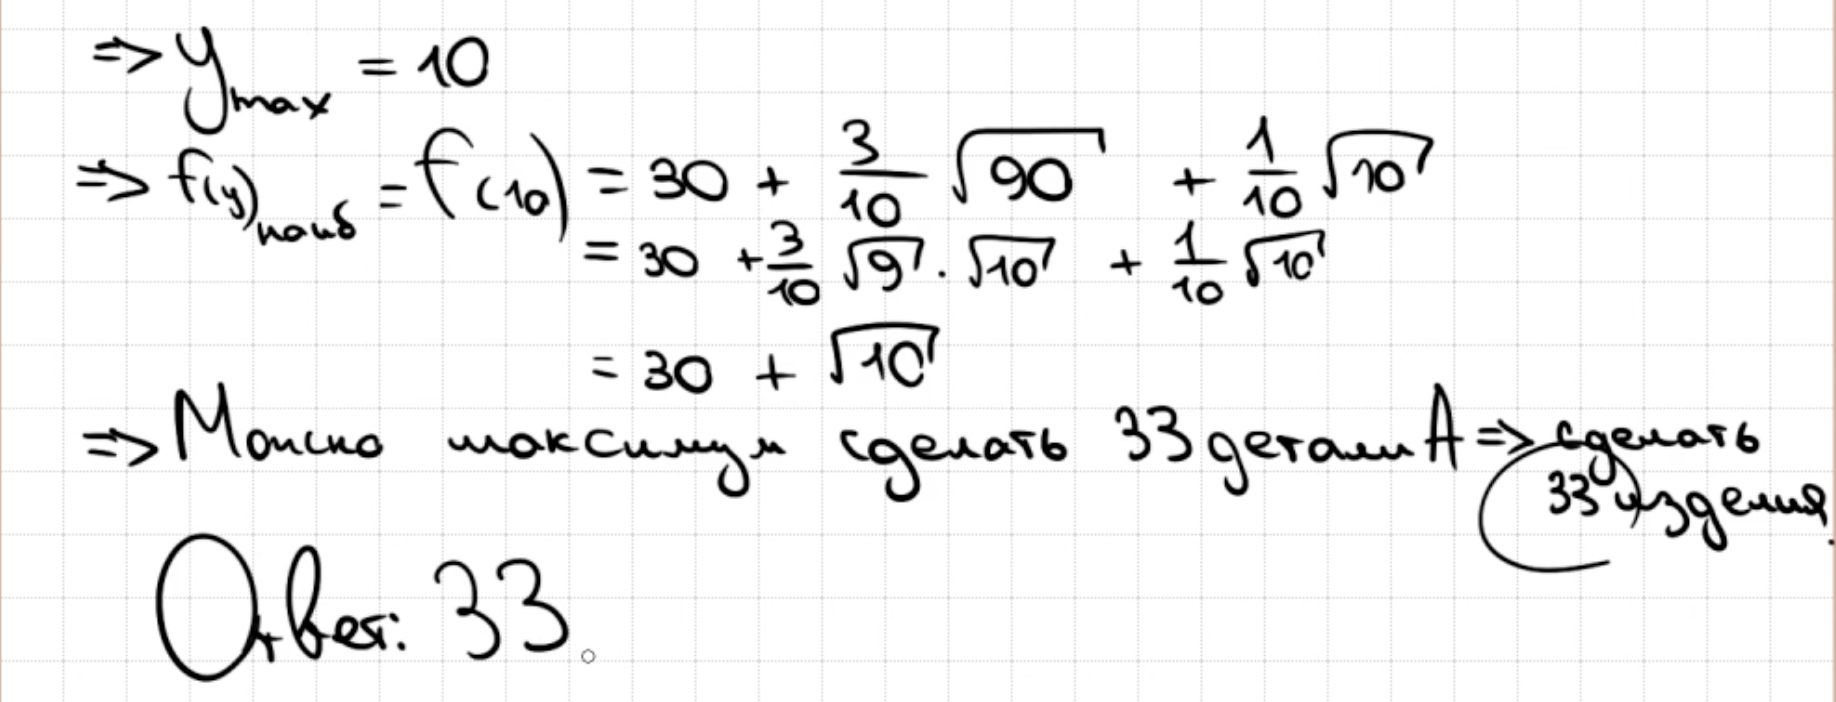 => y_max = 10
=> f(y)_наиб = f(10) = 30 + 3/10 √90 + 1/10 √10
= 30 + 3/10 √9 · √10 + 1/10 √10
= 30 + √10
=> Можно максимум сделать 33 детали A => сделать
33 изделия.
Ответ: 33.